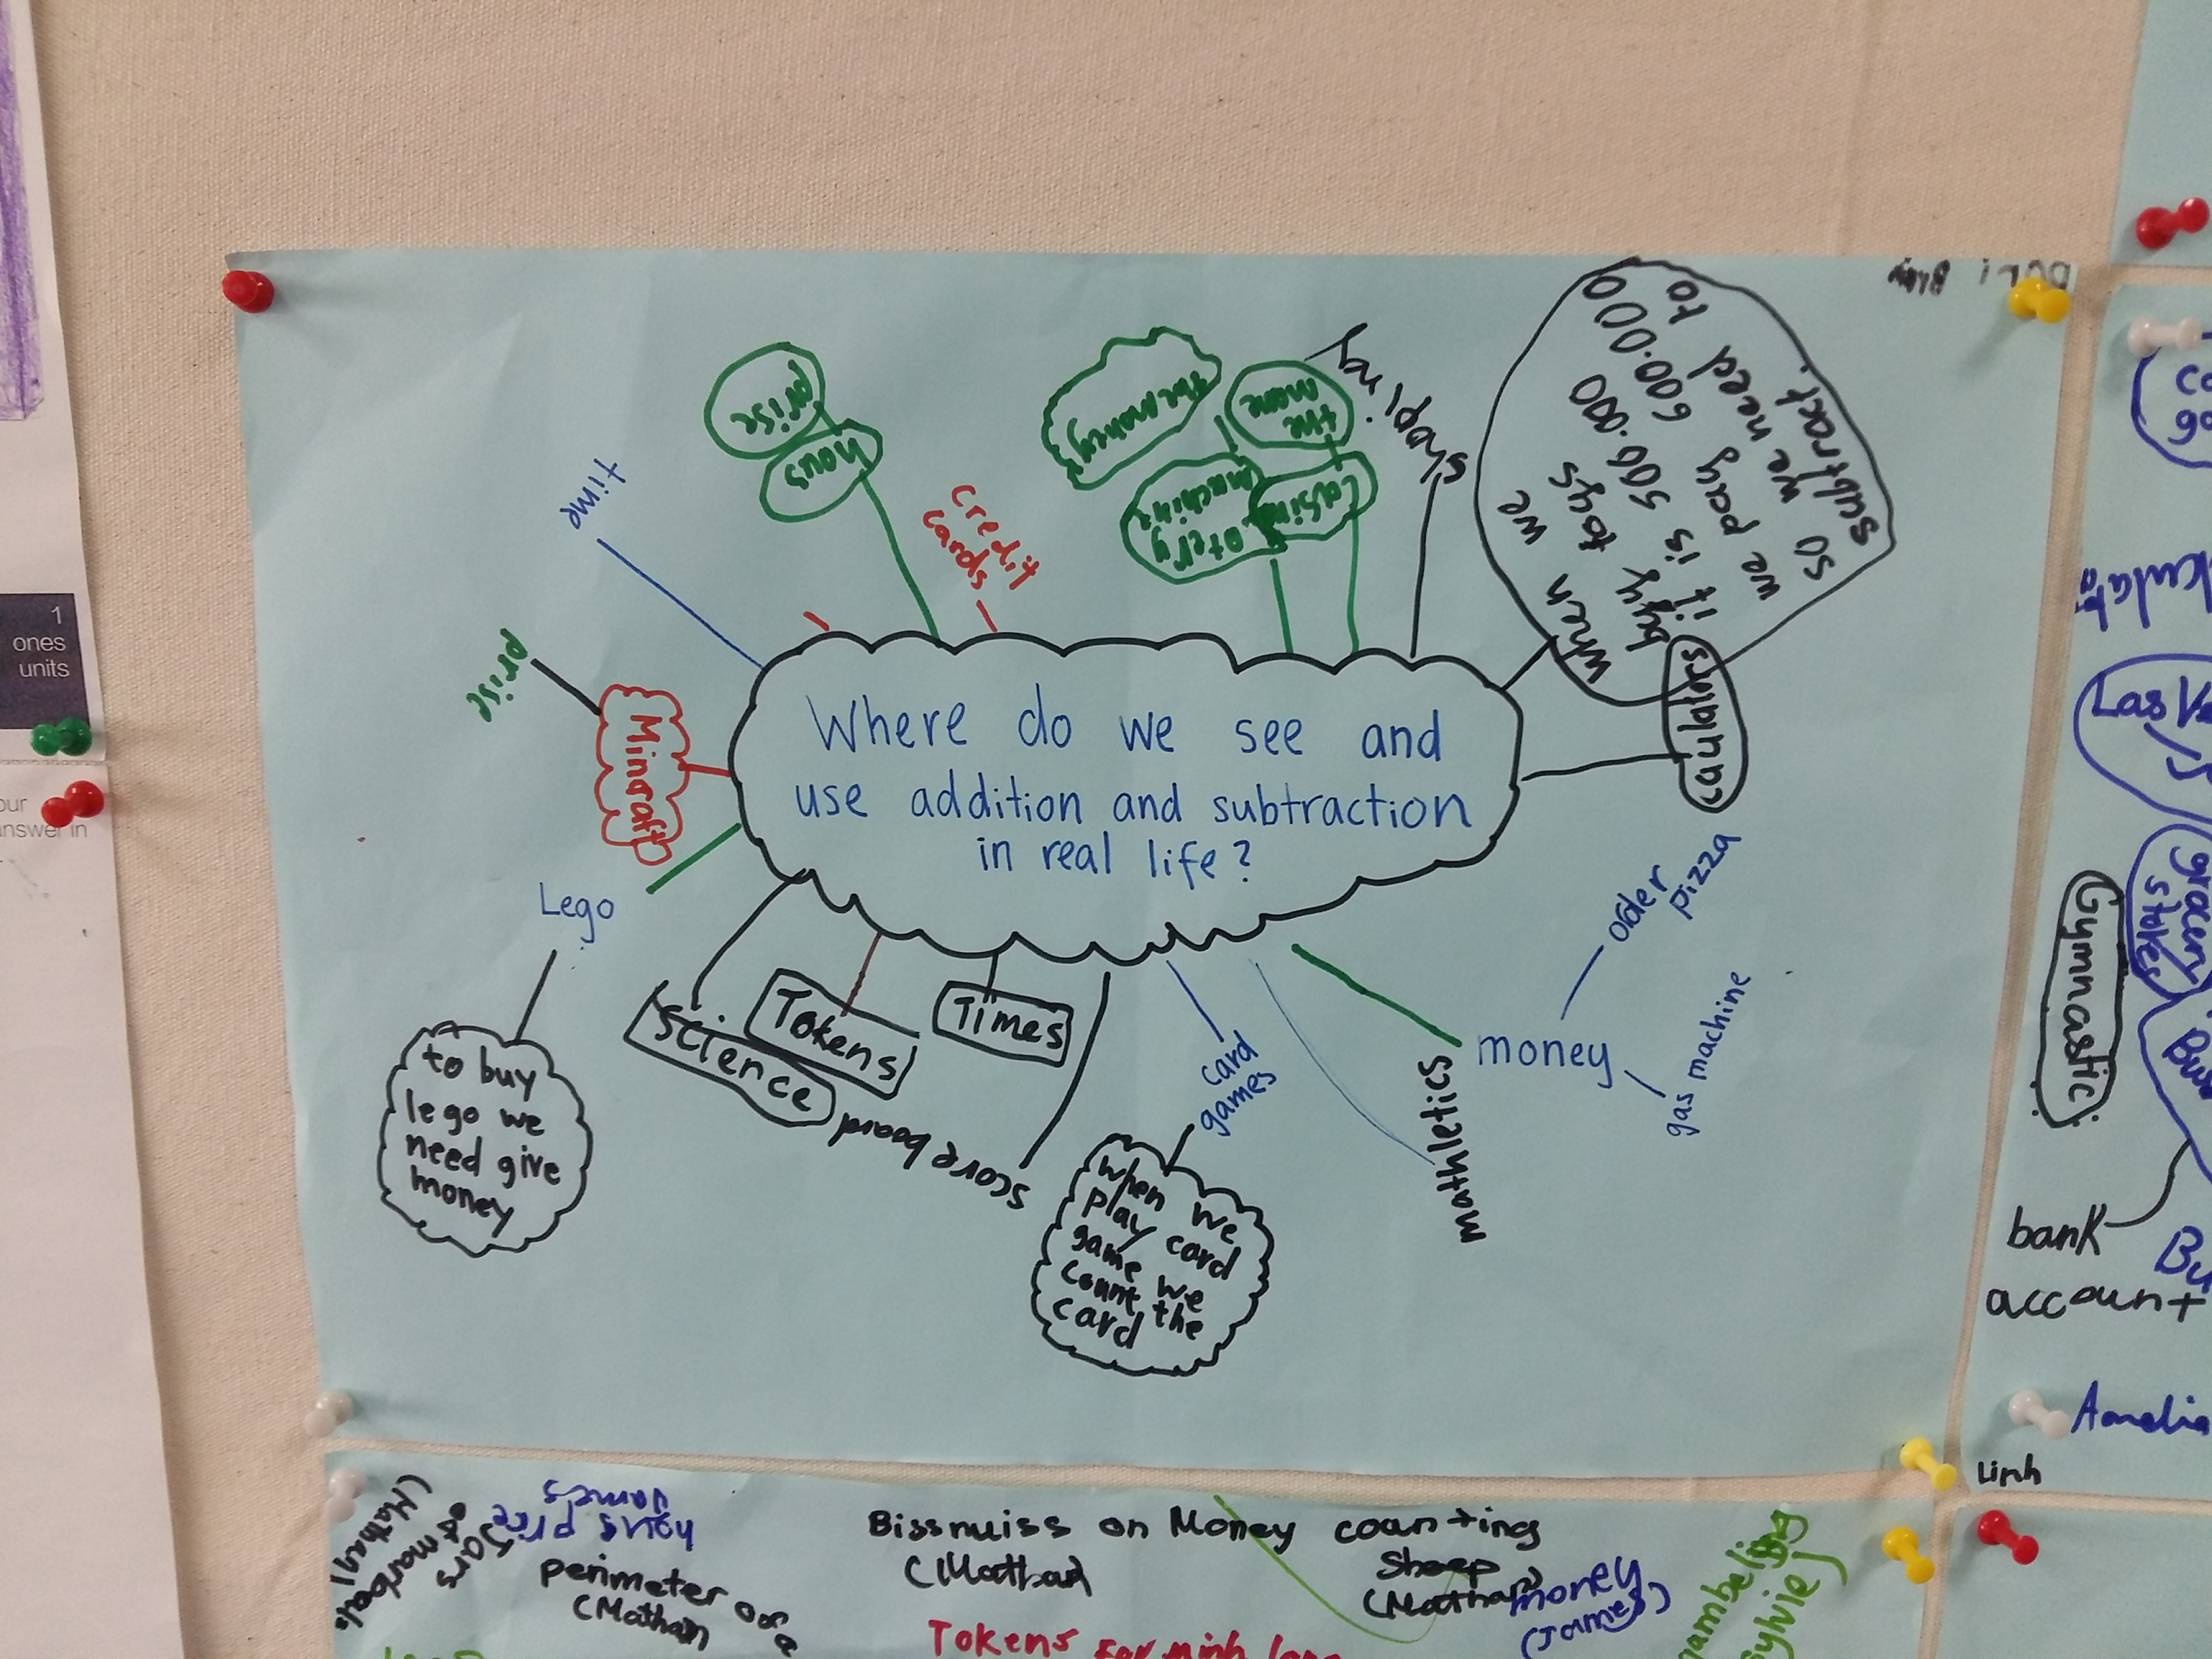 Where do we see and
use addition and subtraction
in real life?
time
prise
hous
credit
cards
the money
the
mone
casino
lotery
machine
shopping
when we
buy toys
it is 500.000
we pay 600.000
so we need to
subtract.
caublairs
prise
Mincraft
Lego
to buy
lego we
need give
money
science
Tokens
Times
score board
card
games
when we
play card
game we
count the
card
mathletics
money
order
pizza
gas machine
1
ones
units
our
answer in
Las Ve
grocery
stores
Gymnastic
bank
account
Bu
Amelia
Linh
(Mathan)
hous price
perimeter of a
(Mathan)
Bissnuiss on Money
(Mathan)
countings
sheep
(Mathan)
money
(James)
gambeling
sylvie)
Tokens For minh